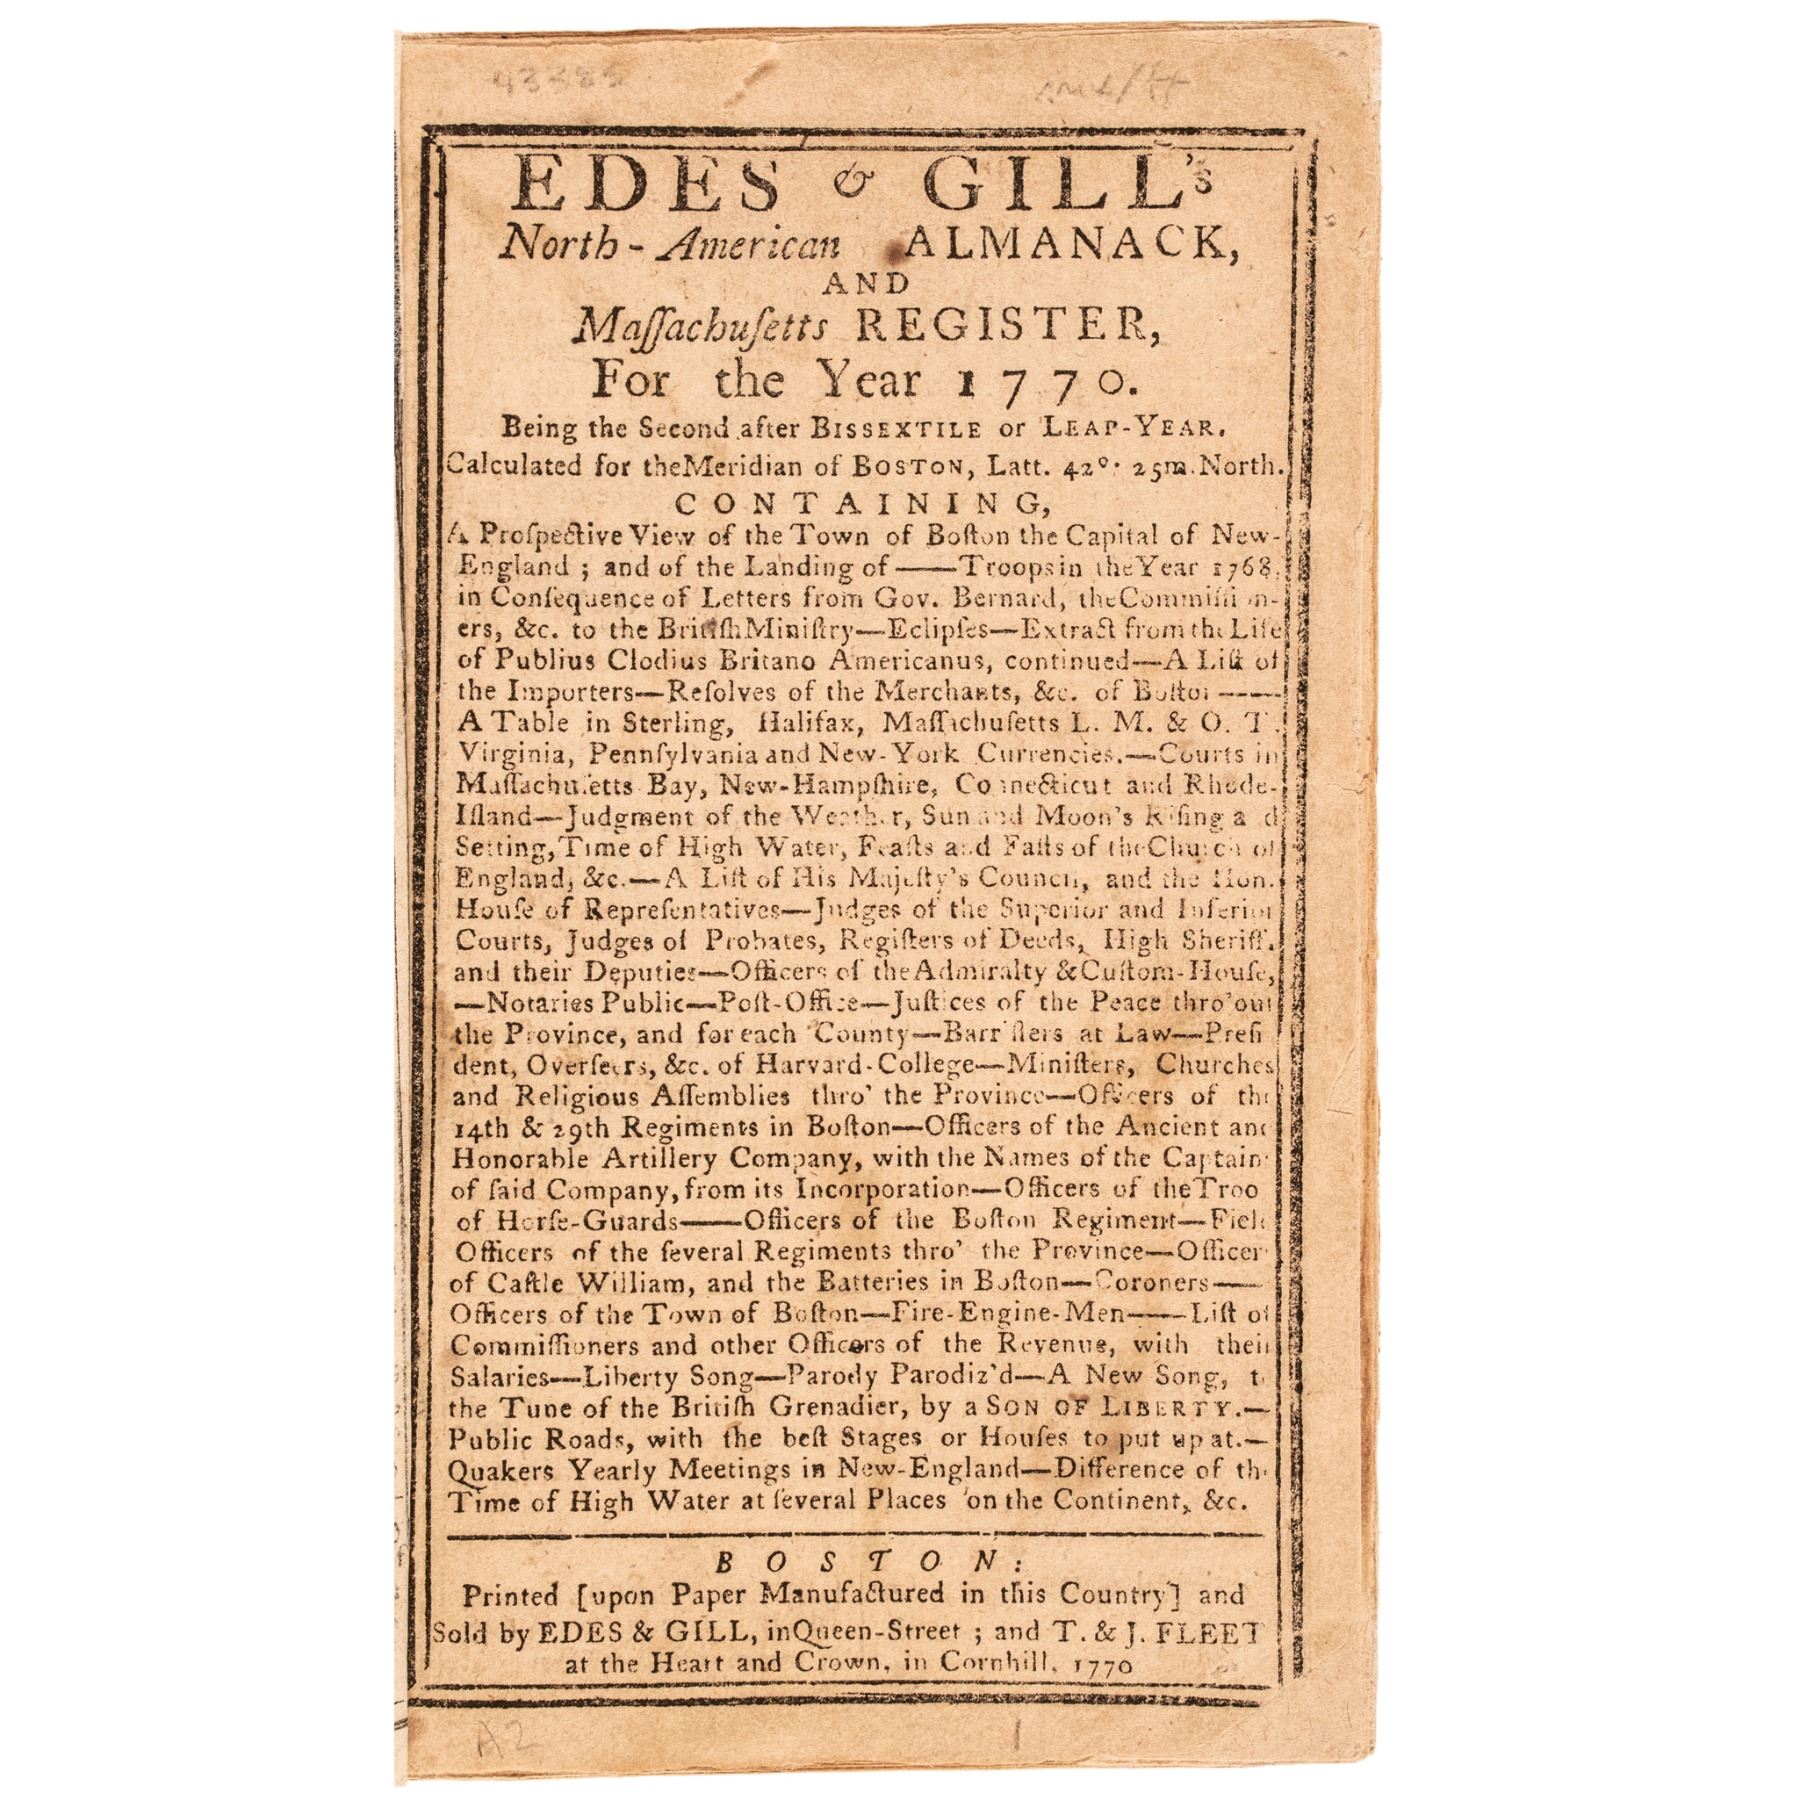 43385
EDES & GILL's
North-American ALMANACK,
AND
Maſſachuſetts REGISTER,
For the Year 1770.
Being the Second after BISSEXTILE or LEAP-YEAR.
Calculated for the Meridian of BOSTON, Latt. 42°. 25m. North.
CONTAINING,
A Proſpective View of the Town of Boſton the Capital of New-
England ; and of the Landing of —— Troops in the Year 1768,
in Conſequence of Letters from Gov. Bernard, the Commiſſion-
ers, &c. to the Britiſh Miniſtry—Eclipſes—Extract from the Life
of Publius Clodius Britano Americanus, continued—A Liſt of
the Importers—Reſolves of the Merchants, &c. of Boſton ——
A Table in Sterling, Halifax, Maſſachuſetts L. M. & O. T.
Virginia, Pennſylvania and New-York Currencies.—Courts in
Maſſachuſetts Bay, New-Hampſhire, Connecticut and Rhode-
Iſland—Judgment of the Weather, Sun and Moon's Riſing and
Setting, Time of High Water, Feaſts and Faſts of the Church of
England, &c.—A Liſt of His Majeſty's Council, and the Hon.
Houſe of Repreſentatives—Judges of the Superior and Inferior
Courts, Judges of Probates, Regiſters of Deeds, High Sheriff.
and their Deputies—Officers of the Admiralty & Cuſtom-Houſe,
—Notaries Public—Poſt-Office—Juſtices of the Peace thro'out
the Province, and for each County—Barriſters at Law—Preſi
dent, Overſeers, &c. of Harvard-College—Miniſters, Churches
and Religious Aſſemblies thro' the Province—Officers of the
14th & 29th Regiments in Boſton—Officers of the Ancient and
Honorable Artillery Company, with the Names of the Captain
of ſaid Company, from its Incorporation—Officers of the Troo
of Horſe-Guards——Officers of the Boſton Regiment—Field
Officers of the ſeveral Regiments thro' the Province—Officer
of Caſtle William, and the Batteries in Boſton—Coroners——
Officers of the Town of Boſton—Fire-Engine-Men——Liſt of
Commiſſioners and other Officers of the Revenue, with their
Salaries—Liberty Song—Parody Parodiz'd—A New Song, t
the Tune of the Britiſh Grenadier, by a SON OF LIBERTY.—
Public Roads, with the beſt Stages or Houſes to put up at.—
Quakers Yearly Meetings in New-England—Difference of the
Time of High Water at ſeveral Places on the Continent, &c.
BOSTON:
Printed [upon Paper Manufactured in this Country] and
Sold by EDES & GILL, in Queen-Street ; and T. & J. FLEET
at the Heart and Crown, in Cornhill, 1770
A2